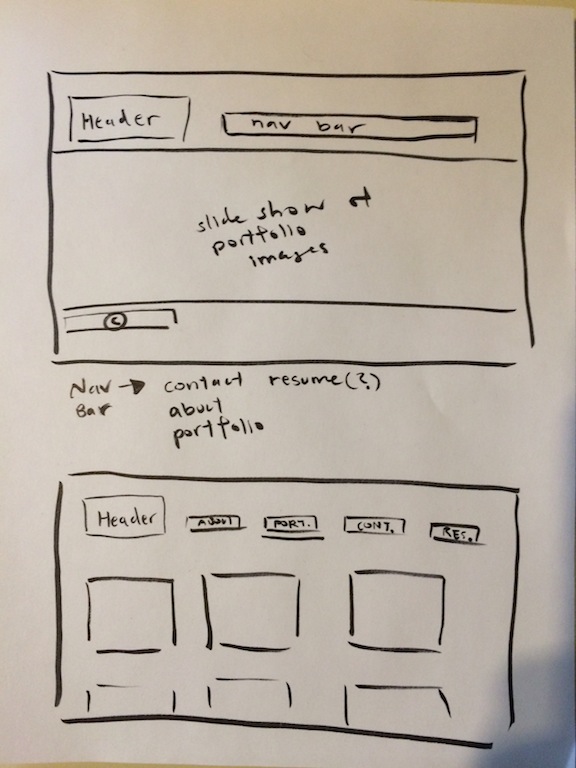 Header
nav bar
slide show of
portfolio
images
©
Nav → contact resume(?)
Bar about
portfolio
Header ABOUT PORT. CONT. RES.